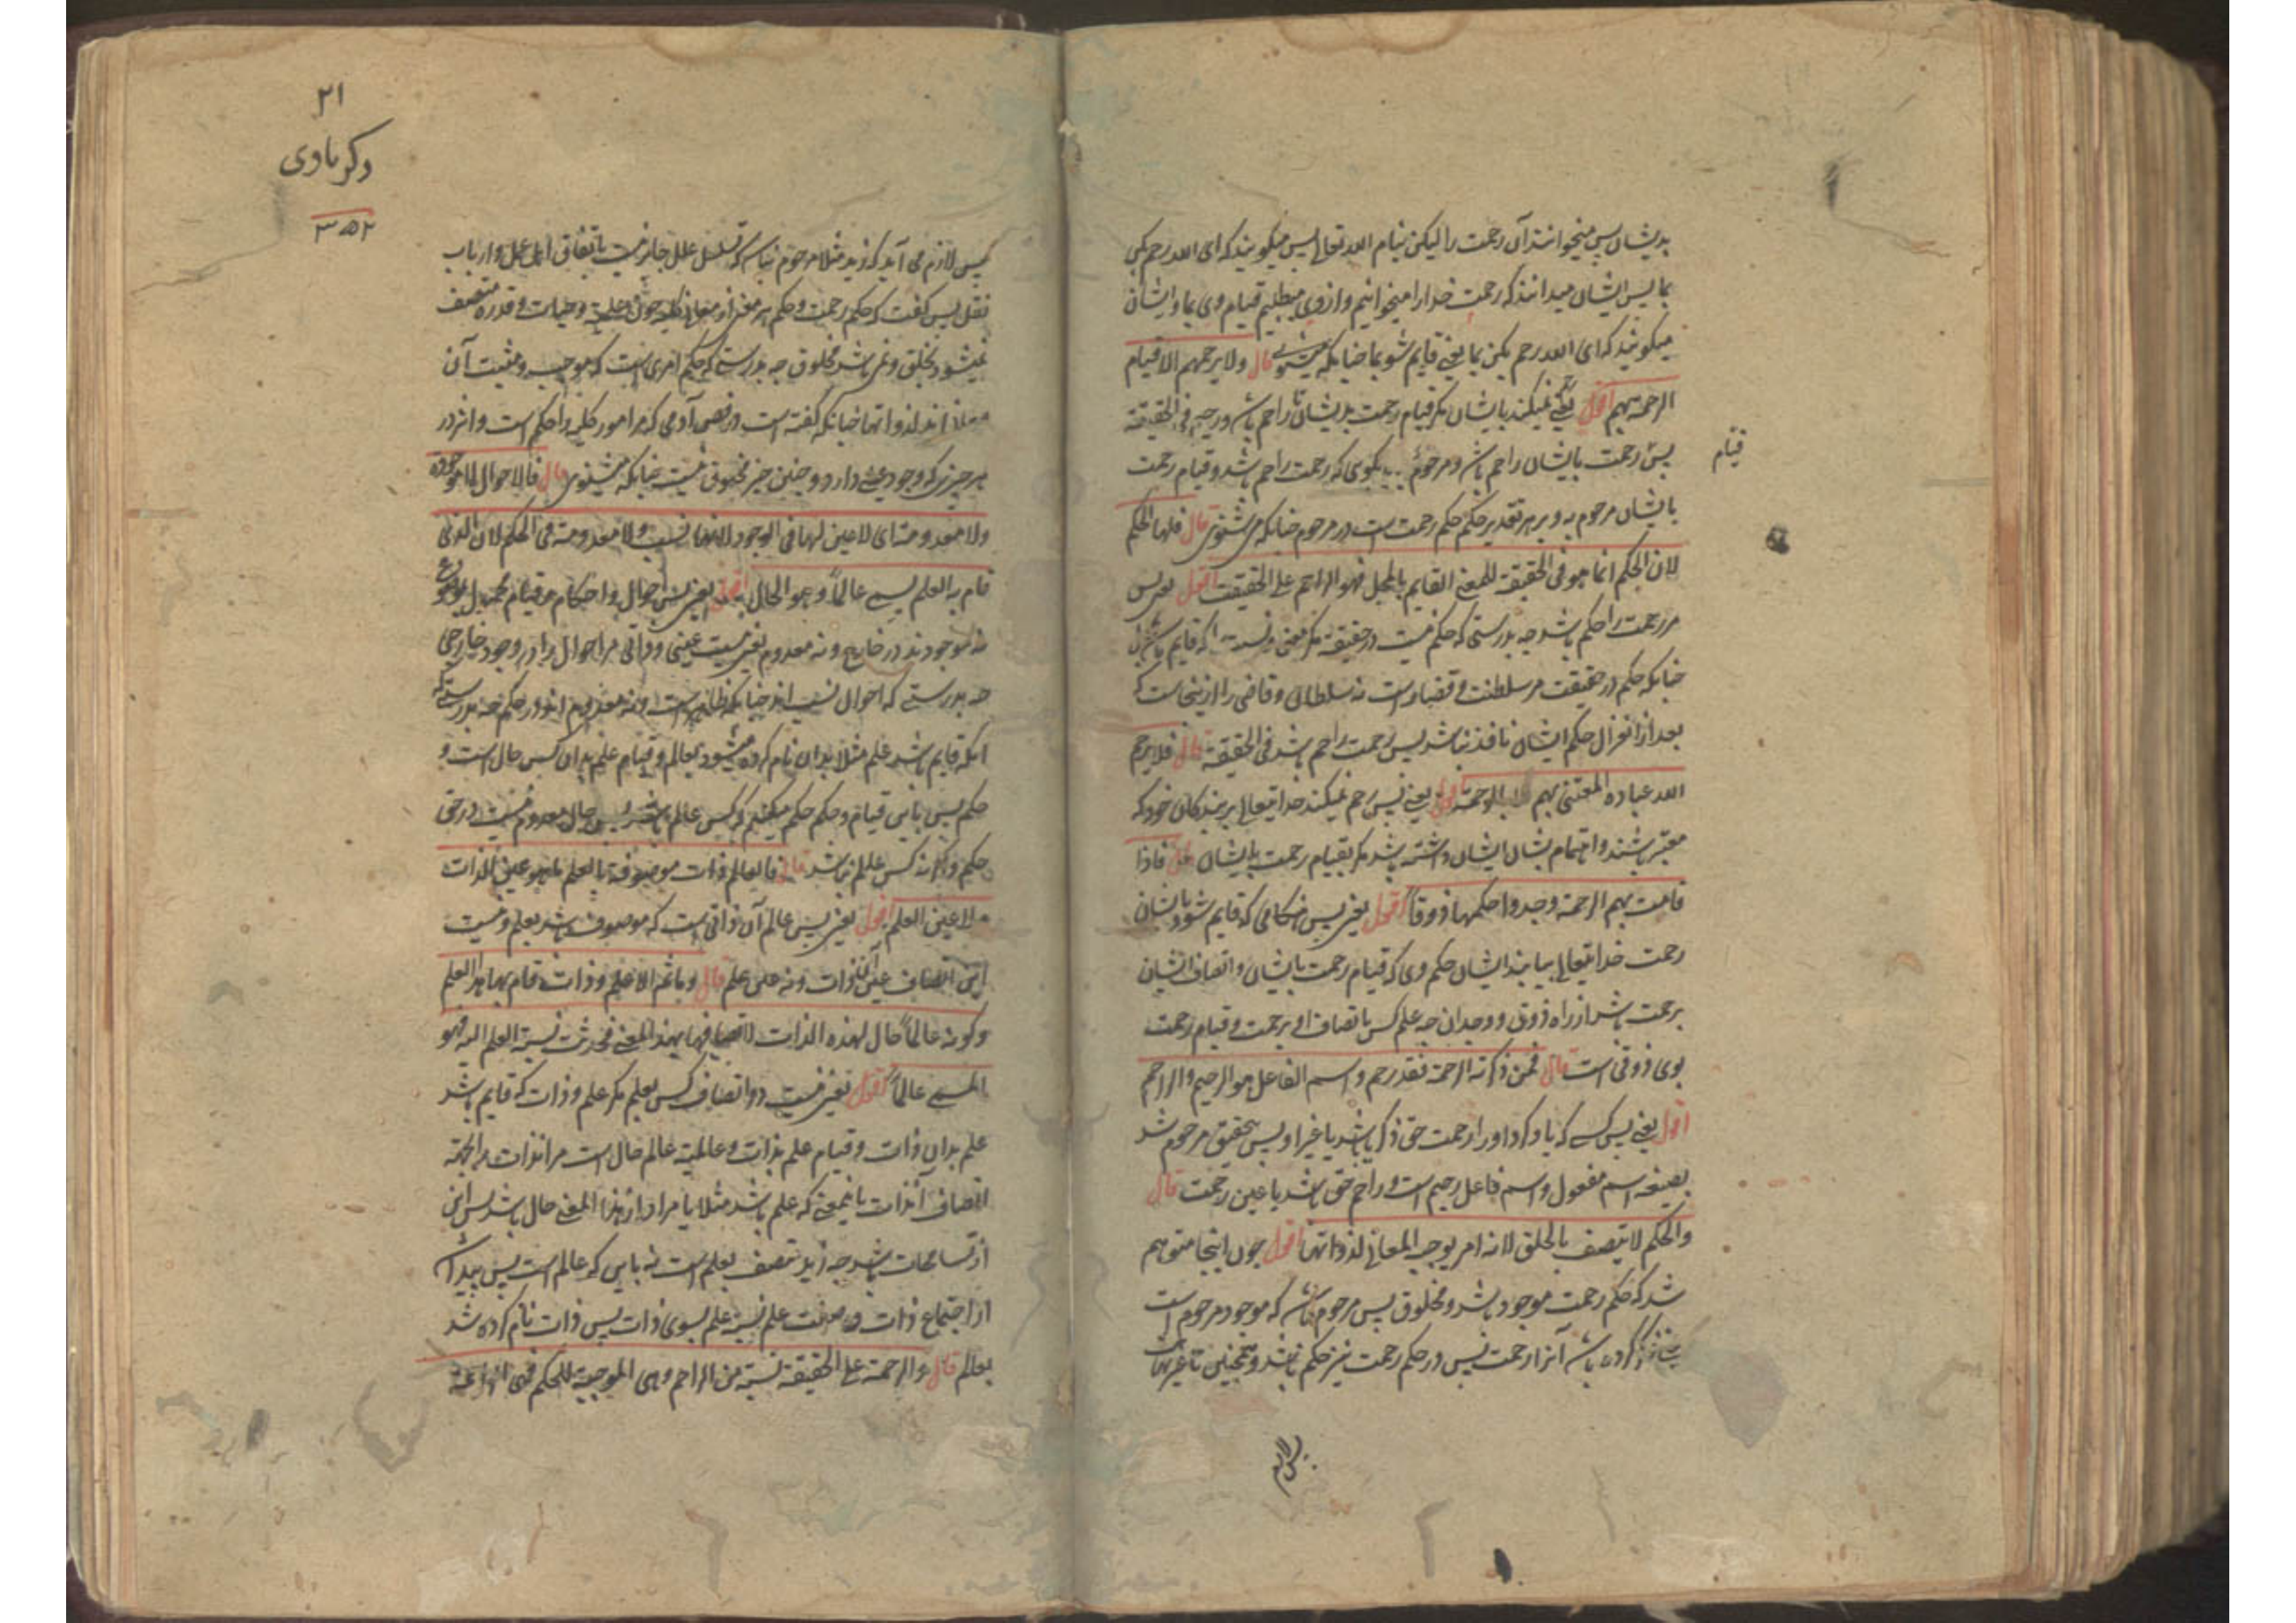 بدیشان پس میخوانند آن رحمت را لیکن بنام الله تعالی پس میگویند که ای الله رحم کن
بما پس ایشان میدانند که رحمت خدا را میخوانیم و از وی میطلبیم قیام وی بما و ایشان
میگویند که ای الله رحم بکن بما یعنی قایم شو بما چنانکه قال ولا یرحمهم الا قیام
الرحمة بهم اقول یعنی نمیکند بایشان مگر قیام رحمت بدیشان تا راحم باشد فی الحقیقة
پس رحمت بایشان راحم باشد و مرحوم بگوی که رحمت راحم باشد و قیام رحمت
قیام
بایشان مرحوم به و بر هر تقدیر حکم حکم رحمت است در مرحوم چنانکه می شنوی قال فلها الحکم
لان الحکم انما هو فی الحقیقة للمعنی القایم بالمحل فهو الراحم علی الحقیقت اقول یعنی پس
مر رحمت را حکم باشد چه بدرستی که حکم نیست در حقیقة مگر معنی را که قایم باشد
چنانکه حکم در حقیقت مر سلطنت و قضا راست نه سلطان و قاضی را ازینجاست که
بعد از انعزال حکم ایشان نافذ نباشد پس رحمت راحم باشد فی الحقیقة قال فلا یرحم
الله عباده المعتنی بهم الا بالرحمة اقول یعنی پس رحم نمیکند خدایتعالی بر بندگان خود که
معتبر باشند و اهتمام بشان ایشان داشته باشد مگر بقیام رحمت بایشان قال فاذا
قامت بهم الرحمة وجدوا حکمها ذوقا اقول یعنی پس هنگامی که قایم شود بایشان
رحمت خدایتعالی بیابند ایشان حکم وی که قیام رحمت بایشان و اتصاف ایشان
برحمت باشد از راه ذوق و وجدان چه علم کس باتصاف او برحمت و قیام رحمت
بوی ذوقی است قال فمن ذکرته الرحمة فقد رحم و اسم الفاعل هو الرحیم والراحم
اقول یعنی پس کسی که یاد کرد او را رحمت حق ذکر باشد یا غیر او پس بتحقیق مرحوم شد
بصیغه اسم مفعول و اسم فاعل رحیم است و راحم حق باشد یا عین رحمت قال
والحکم لا یتصف بالخلق لانه امر یوجبه المعانی لذواتها اقول چون اینجا متوهم
شد که حکم رحمت موجود باشد و مخلوق پس مرحوم باشد که موجود مرحوم است
آنرا رحمت پس در حکم رحمت نیز حکم باشد و همچنین تا غیر نهایت
پس لازم
۲۱
وکریاوی
۳۵۲
پس لازم می آید که زید مثلا مرحوم نباشد که تسلسل علل جایز نیست باتفاق اهل عقل و ارباب
نقل پس گفت که حکم رحمت و حکم هر معنی از معانی کلیه چون علمیة و حیات و قدرة متصف
نمیشود بخلق و نمی باشد مخلوق چه بدرستی که حکم امری است که موجب و مثبت آن
معانی اند لذواتها چنانکه گفته است در فص آدمی که مر امور کلیه را حکم است و اثر در
هر چیزی که وجود عینی دارد و چنین چیز مخلوق نیست چنانکه میشنوی قال فالاحوال لا موجوده
ولا معدومة ای لا عین لها فی الوجود لانها نسب ولا معدومة فی الحکم لان الذی
قام به العلم یسمی عالما و هو الحال اقول یعنی پس احوال و احکام
نه موجودند در خارج و نه معدوم یعنی نیست عینی و ذاتی مر احوال را در وجود خارجی
چه بدرستی که احوال نسب اند چنانکه ظاهر است و نه معدوم اند در حکم چه بدرستی که
آنکه قایم باشد علم مثلا بدان نام کرده میشود بعالم و قیام علم بدان کس حال است و
حکم پس باین قیام و حکم حکم میکنیم که کس عالم باشد پس حال معدوم نیست در حق
حکم و اگر نه کس عالم نباشد قال فالعالم ذات موصوفة بالعلم ما هو عین الذات
ولا عین العلم اقول یعنی پس عالم آن ذاتی است که موصوف باشد بعلم و نیست
این اتصاف عین آن ذات و نه عین علم قال و ما ثمة الا علم و ذات قام بها هذا العلم
و کونه عالما حال لهذه الذات لاتصافها بهذا المعنی فحدثت نسبة العلم الیه فهو
المسمی عالما اقول یعنی نیست در اتصاف کس بعلم مگر علم و ذات که قایم باشد
علم بدان ذات و قیام علم بذات و عالمیة عالم حال است مر آنذات را بجهة
اتصاف آنذات باینمعنی که علم باشد مثلا یا مراد از هذا المعنی حال باشد پس این
از تسامحات باشد چه زید متصف بعلم است نه باین که عالم است پس پیدا شد
از اجتماع ذات و صفت علم نسبة علم بسوی ذات پس ذات نام کرده شد
بعالم قال والرحمة علی الحقیقة نسبة من الراحم وهی الموجبة للحکم فهی الراحمة